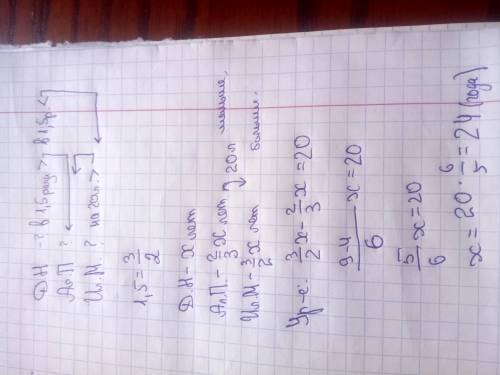 Д.Н ? в 1,5раза >, в 1,5р <
Ал.П ?
Ил.М ? на 20л. >
1,5 = 3/2
Д.Н - x лет
Ал.П. - 2/3 x лет меньше,
20л
Ил.М - 3/2 x лет больше.
Ур-е: 3/2 x - 2/3 x = 20
9-4/6 x = 20
5/6 x = 20
x = 20 · 6/5 = 24 (года)